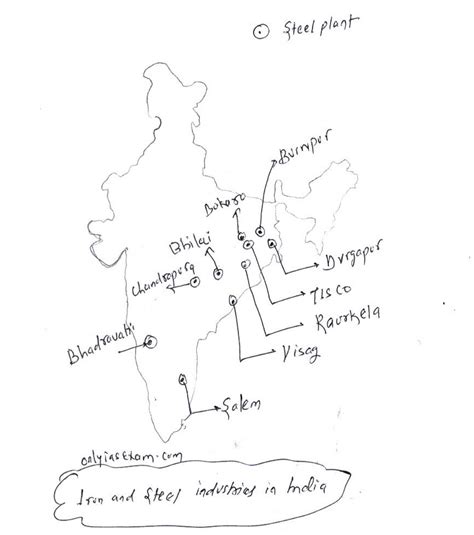 Steel plant
Burnpur
Bokaro
Bhilai
Chandrapura
Durgapur
TISCO
Raurkela
Visag
Bhadravati
Salem
onlyiasexam.com
Iron and Steel industries in India